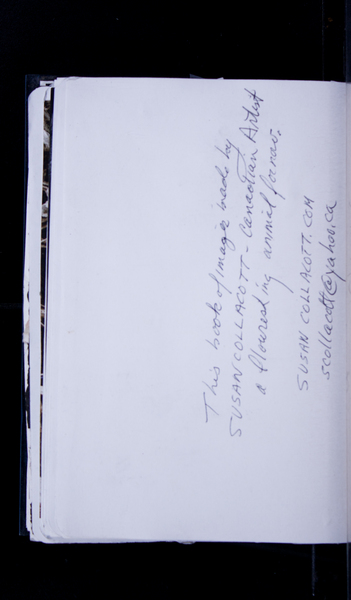 This book of images made by
SUSAN COLLACOTT - Canadian Artist
a flouresting animal forms.
SUSAN COLLACOTT.COM
scollacott@yahoo.ca